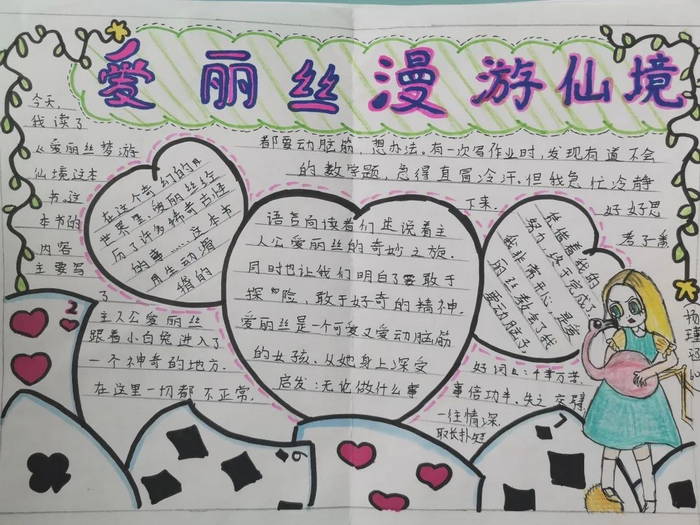 爱丽丝漫游仙境
今天,
我读了
《爱丽丝梦游
仙境》这本
书,这
本书的
内容
主要写
了
主人公爱丽丝
跟着小白兔进入了
一个神奇的地方.
在这里一切都不正常.
在这个奇幻的
世界里,爱丽丝经
历了许多稀奇古怪
的事……这本书
用生动滑
稽的
语言向读者们 述说着主
人公爱丽丝的奇妙之旅.
同时也让我们明白了要敢于
探险、敢于好奇的精神.
爱丽丝是一个可爱又爱动脑筋
的女孩、从她身上深受
启发:无论做什么事
都要动脑筋、想办法,有一次写作业时,发现有道不会
的数学题,急得直冒冷汗.但我急忙冷静
下来.
好好思
考了一番
凭借着我的
努力,终于完成了
我非常开心,是爱
丽丝教会了我
爱动脑子.
好词
事倍功半,失之交臂
一往情深,
取长补短
2
6
7